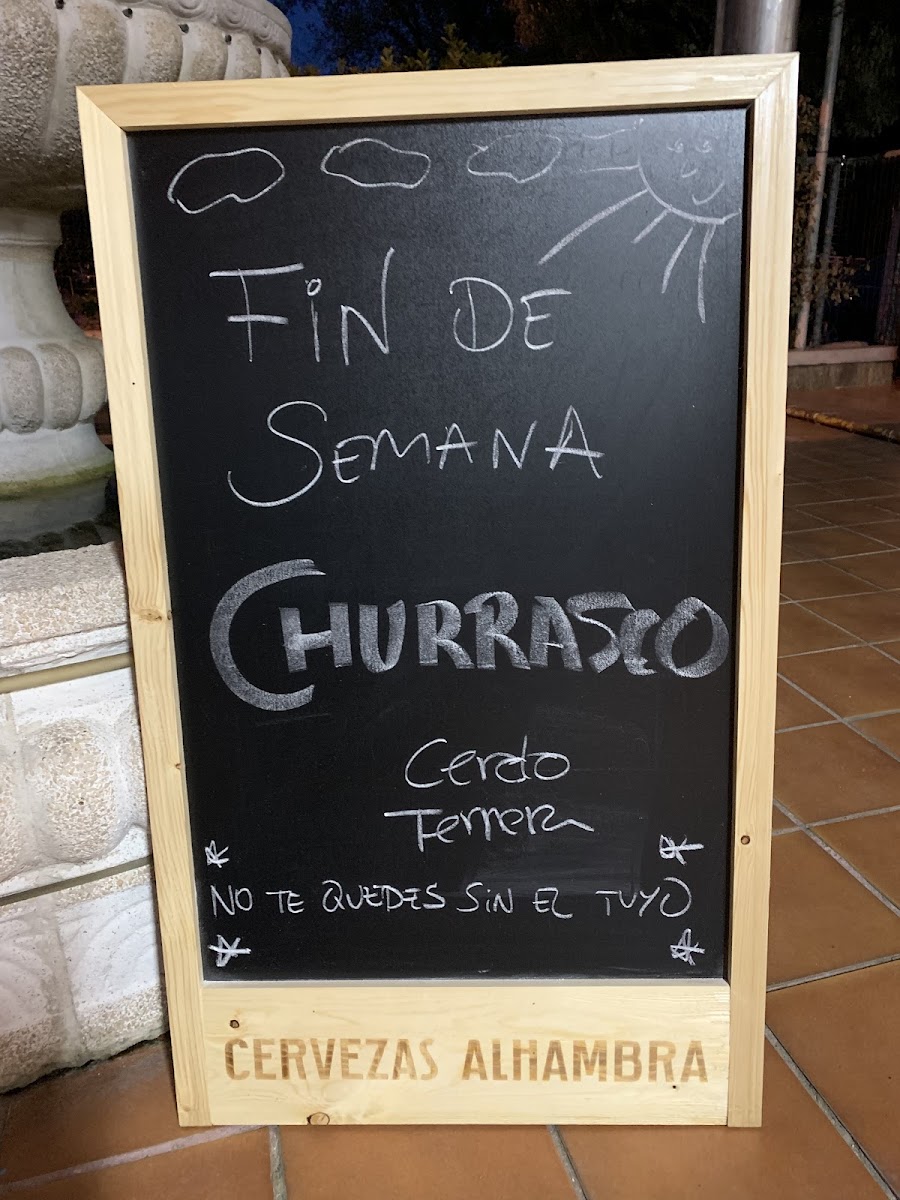 FiN DE
SEMANA
CHURRASCO
Cerdo
Ternera
NO TE QUEDES SiN EL TUYO
CERVEZAS ALHAMBRA